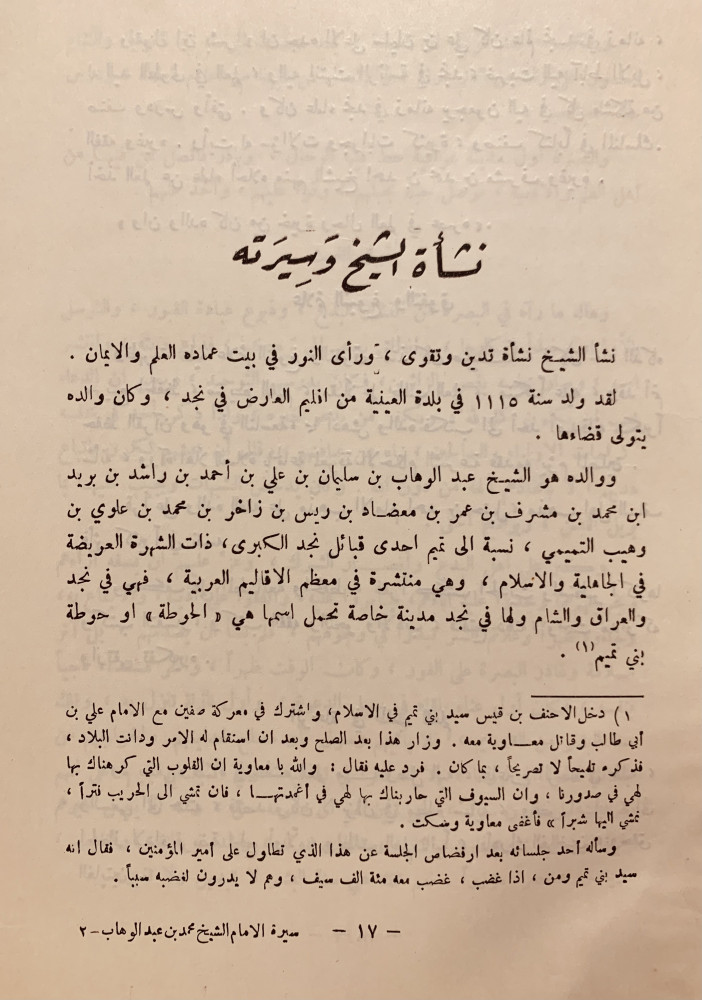 نشأة الشيخ وَسِيرَته
نشأ الشيخ نشأة تدين وتقوى ، ورأى النور في بيت عماده العلم والايمان .
لقد ولد سنة ١١١٥ في بلدة العينية من اقليم العارض في نجد ، وكان والده
يتولى قضاءها .
ووالده هو الشيخ عبد الوهاب بن سليمان بن علي بن أحمد بن راشد بن بريد
ابن محمد بن مشرف بن عمر بن معضاد بن ريس بن زاخر بن محمد بن علوي بن
وهيب التميمي ، نسبة الى تميم احدى قبائل نجد الكبرى، ذات الشهرة العريضة
في الجاهلية والاسلام ، وهي منتشرة في معظم الاقاليم العربية ، فهي في نجد
والعراق والشام ولها في نجد مدينة خاصة تحمل اسمها هي « الحوطة » او حوطة
بني تميم(١) .
١) دخل الاحنف بن قيس سيد بني تميم في الاسلام، واشترك في معركة صفين مع الامام علي بن
أبي طالب وقاتل معاوية معه . وزار هذا بعد الصلح وبعد ان استقام له الامر ودانت البلاد ،
فذكره تلميحاً لا تصريحاً ، بما كان . فرد عليه فقال : والله يا معاوية ان القلوب التي كرهناك بها
لهي في صدورنا ، وان السيوف التي حاربناك بها لهي في أغمدتها ، فان تمشي الى الحريب فتراً ،
نمشي اليها شبراً » فأغفى معاوية وسكت .
وسأله أحد جلسائه بعد ارفضاض الجلسة عن هذا الذي تطاول على أمير المؤمنين ، فقال انه
سيد بني تميم ومن ، اذا غضب ، غضب معه مئة الف سيف ، وهم لا يدرون لغضبه سبباً .
– ١٧ – سيرة الامام الشيخ محمد بن عبد الوهاب – ٢